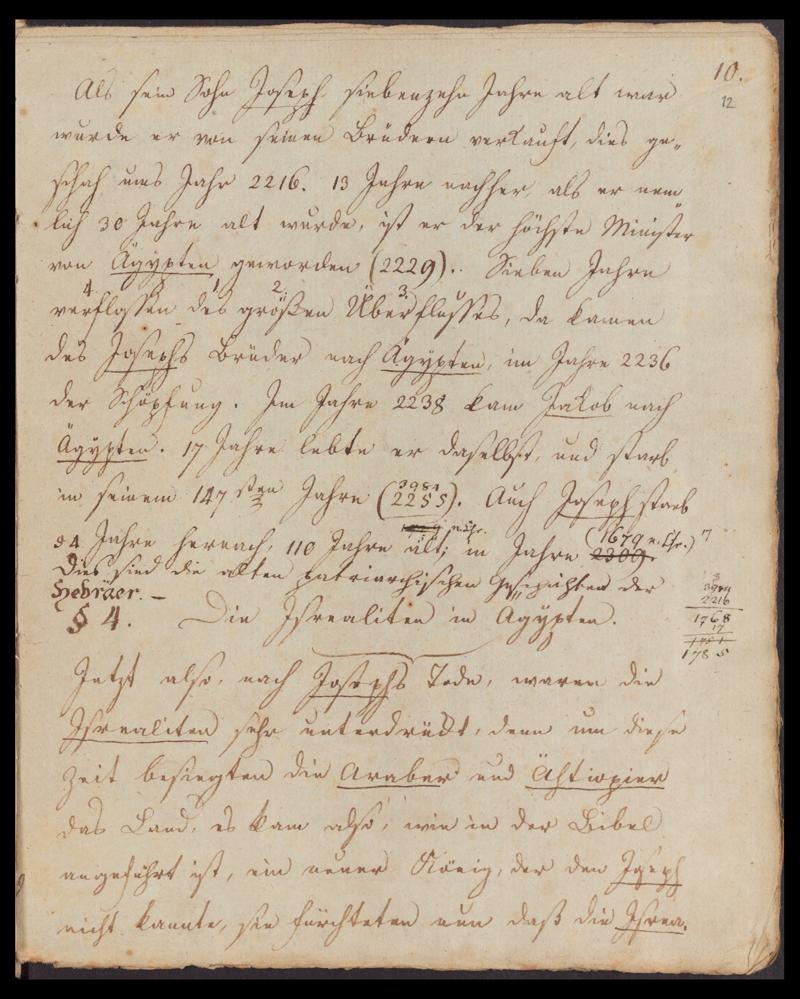 10.
12
Als sein Sohn Joseph siebenzehn Jahre alt war
wurde er von seinen Brüdern verkauft, dies ge„
schah ums Jahr 2216. 13 Jahre nachher, als er nem„
lich 30 Jahre alt wurde, ist er der höchste Minister
von Ägypten geworden (2229). Sieben Jahre
4. 1. 2. 3.
verflossen des großen Überflusses, da kamen
des Josephs Brüder nach Ägypten, im Jahre 2236
der Schöpfung. Im Jahre 2238 kam Jakob nach
Ägypten. 17 Jahre lebte er daselbst, und starb
3984
in seinem 147sten Jahre (2255). Auch Joseph starb
v. Chr. (1679 v. Chr.)
54 Jahre hernach, 110 Jahre alt; im Jahre 2309.
Dies sind die alten patriarchischen Geschichten der
Hebräer. –
3984
2216
1768
17
1751
1785
§ 4. Die Isrealiten in Ägypten.
Jetzt also, nach Josephs Tode, waren die
Isrealiten sehr unterdrückt, denn um diese
Zeit besiegten die Araber und Ähtiopier
das Land, es kam also, wie in der Bibel
angeführt ist, ein neuer König, der den Joseph
nicht kannte, sie fürchteten nun daß die Isrea„